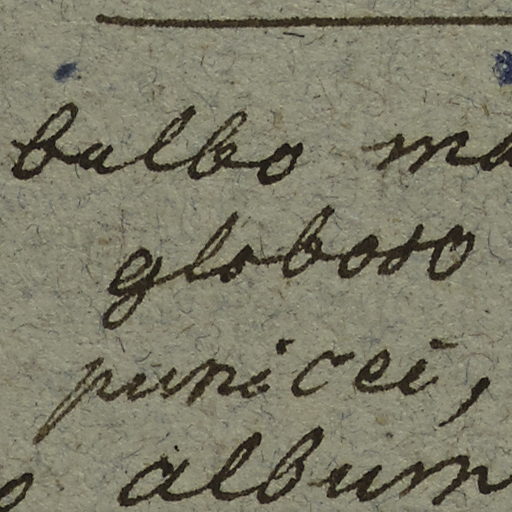 bulbo ma
globoso
punicei,
o album